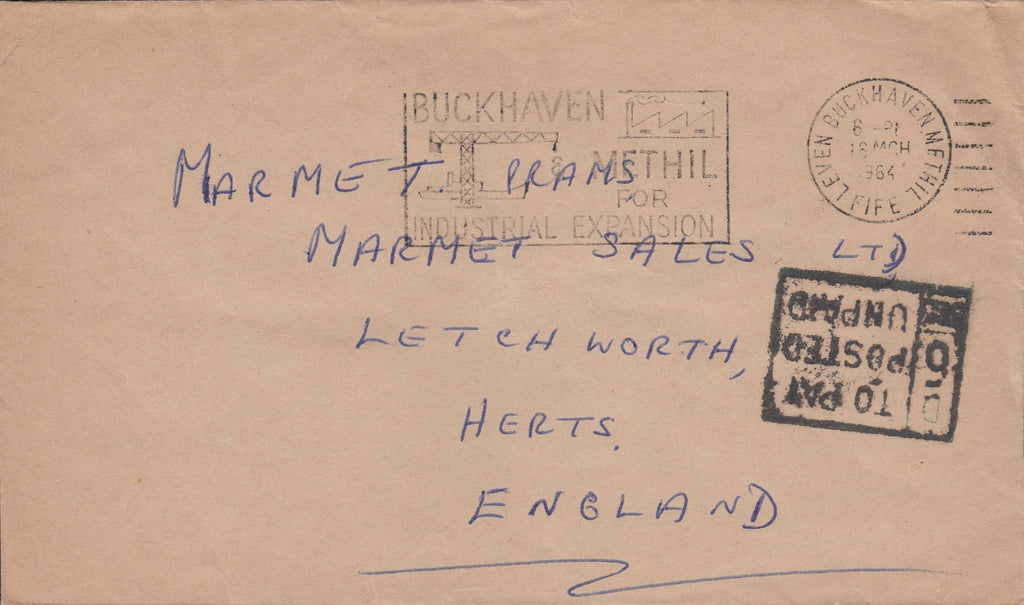 BUCKHAVEN
& METHIL
FOR
INDUSTRIAL EXPANSION
LEVEN BUCKHAVEN METHIL
FIFE
6 - PM
MCH
1964
MARMET PRAMS,
MARMET SALES LTD,
LETCHWORTH,
HERTS.
ENGLAND
TO PAY
POSTED
UNPAID
D